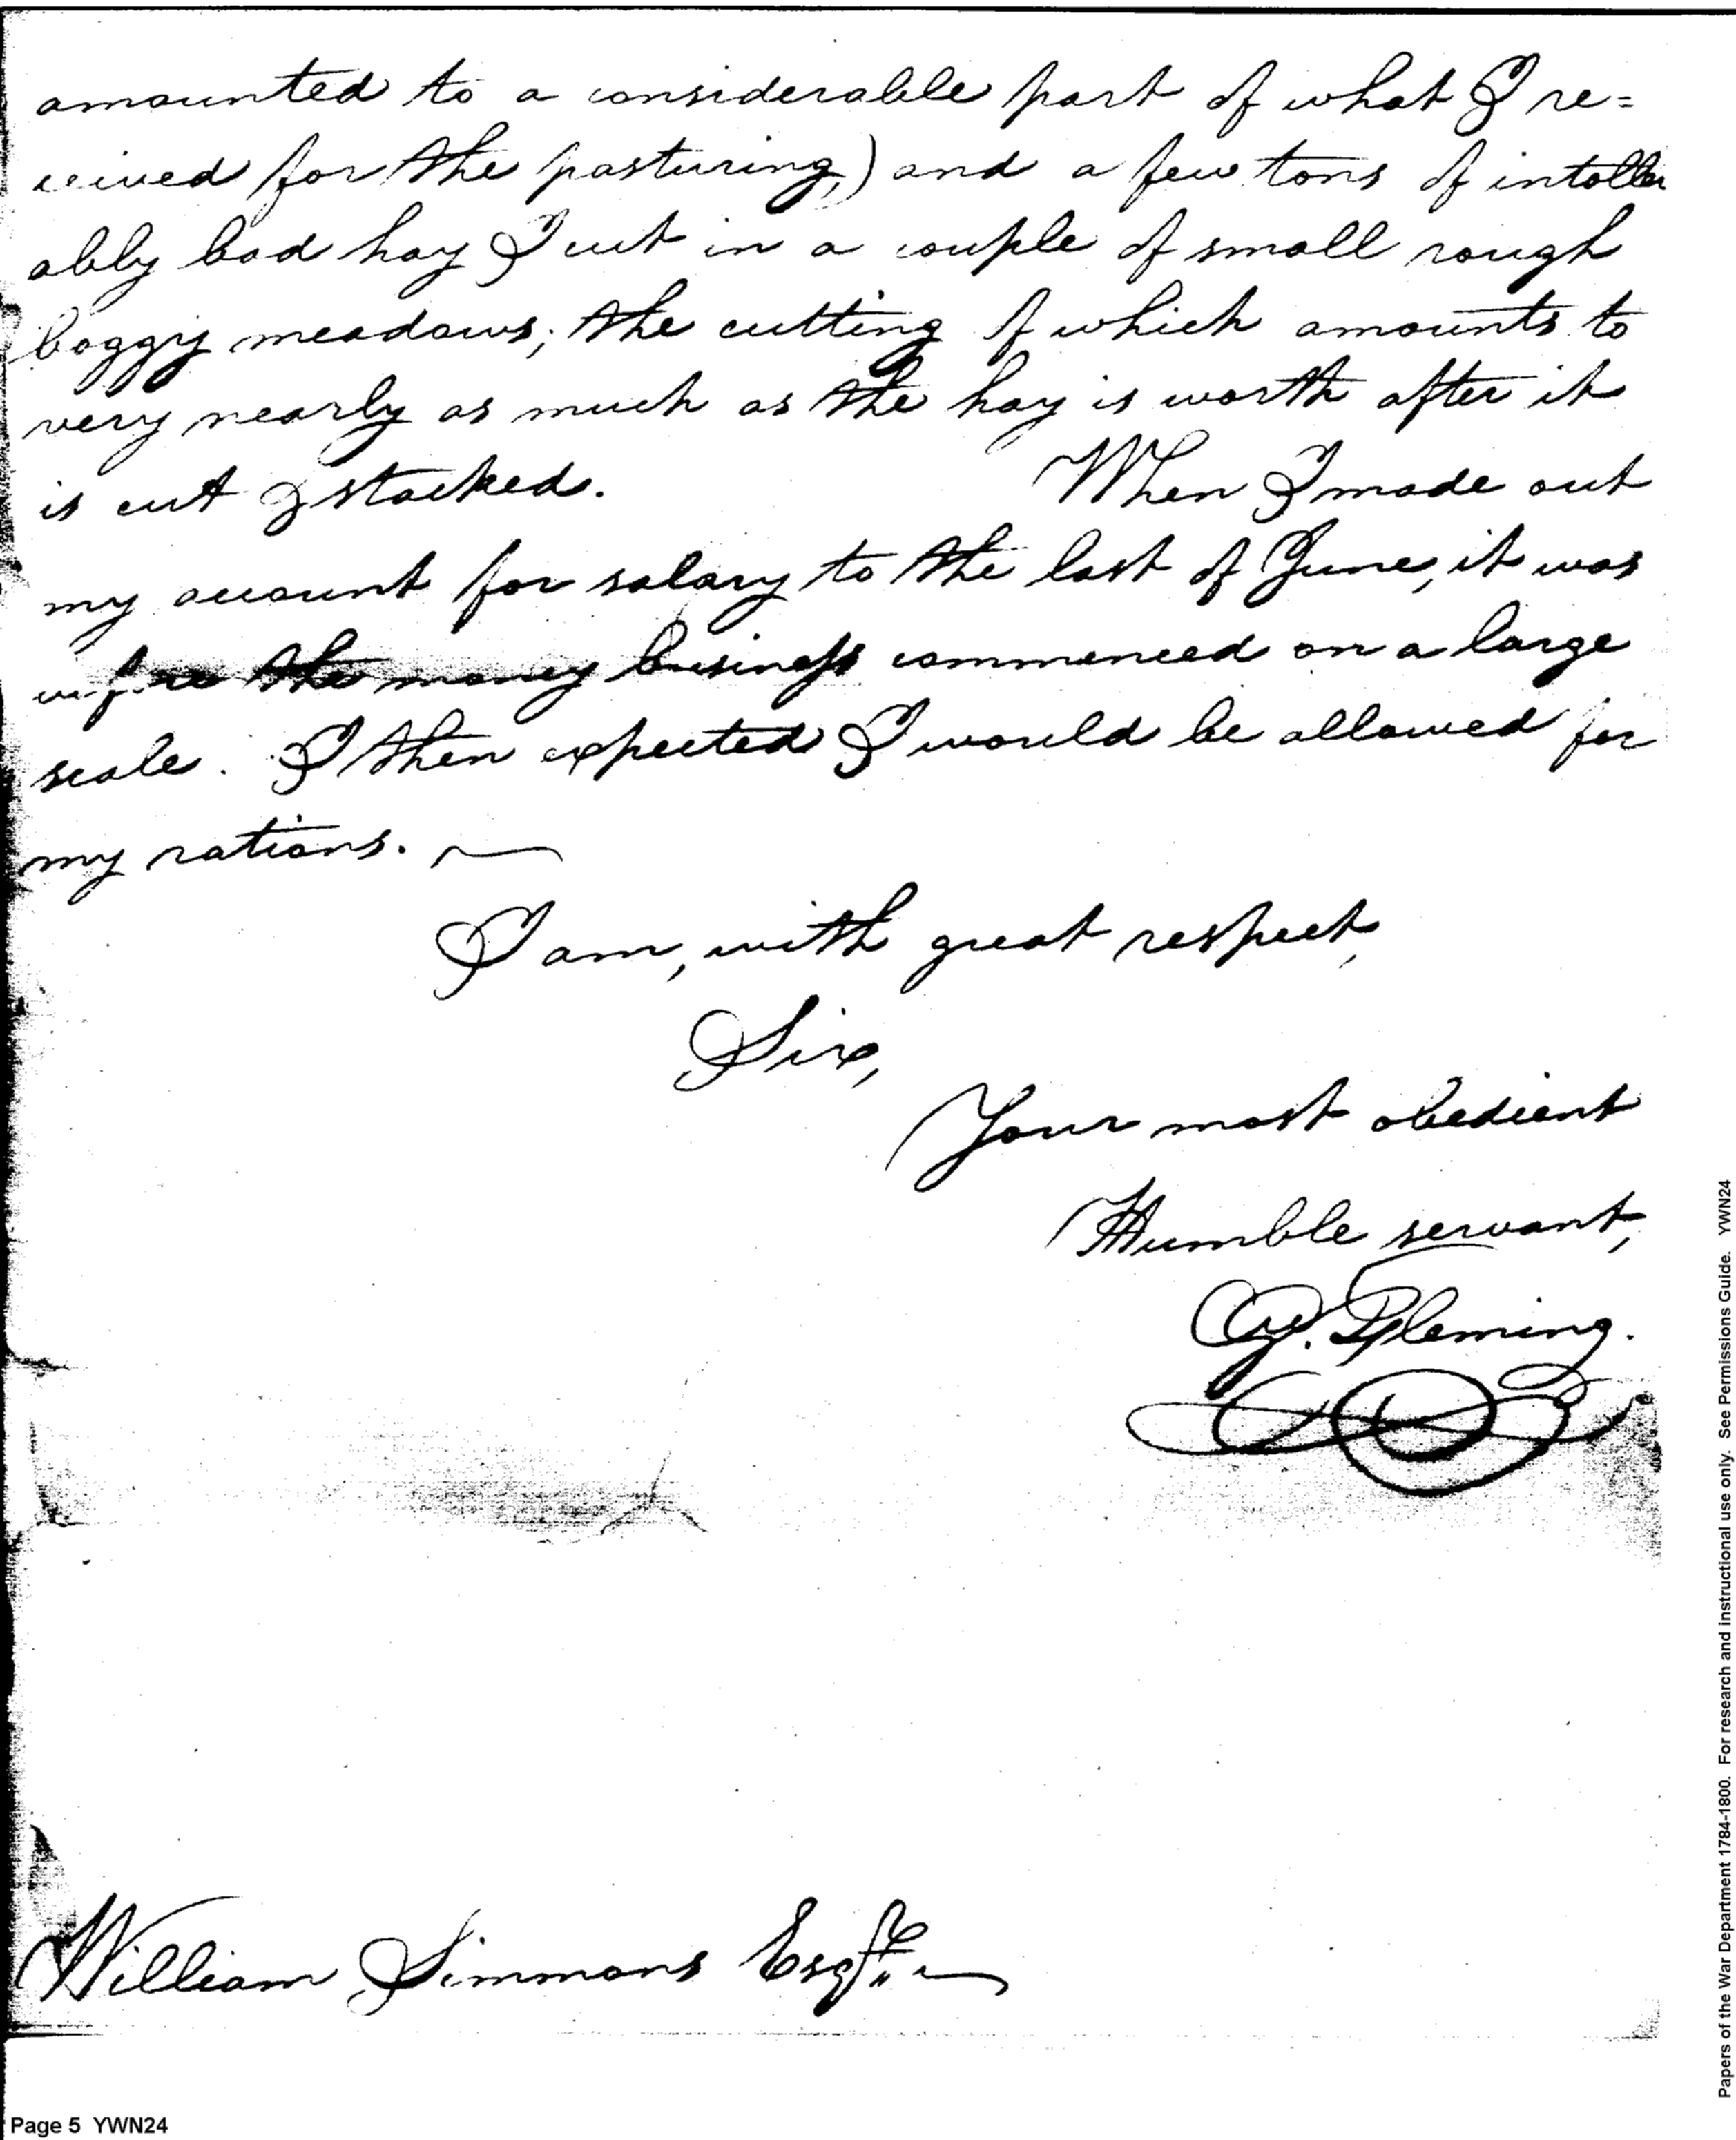 amounted to a considerable part of what I re=
ceived for the pasturing,) and a few tons of intoller
ably bad hay I cut in a couple of small rough
boggy meadows; the cutting of which amounts to
very nearly as much as the hay is worth after it
is cut & stacked. When I made out
my account for salary to the last of June, it was
before the money business commenced on a large
scale. I then expected I would be allowed for
my rations.
I am, with great respect,
Sir,
Your most obedient
Humble servant,
G. Fleming.
William Simmons Esqr.
Page 5 YWN24
Papers of the War Department 1784-1800. For research and instructional use only. See Permissions Guide. YWN24